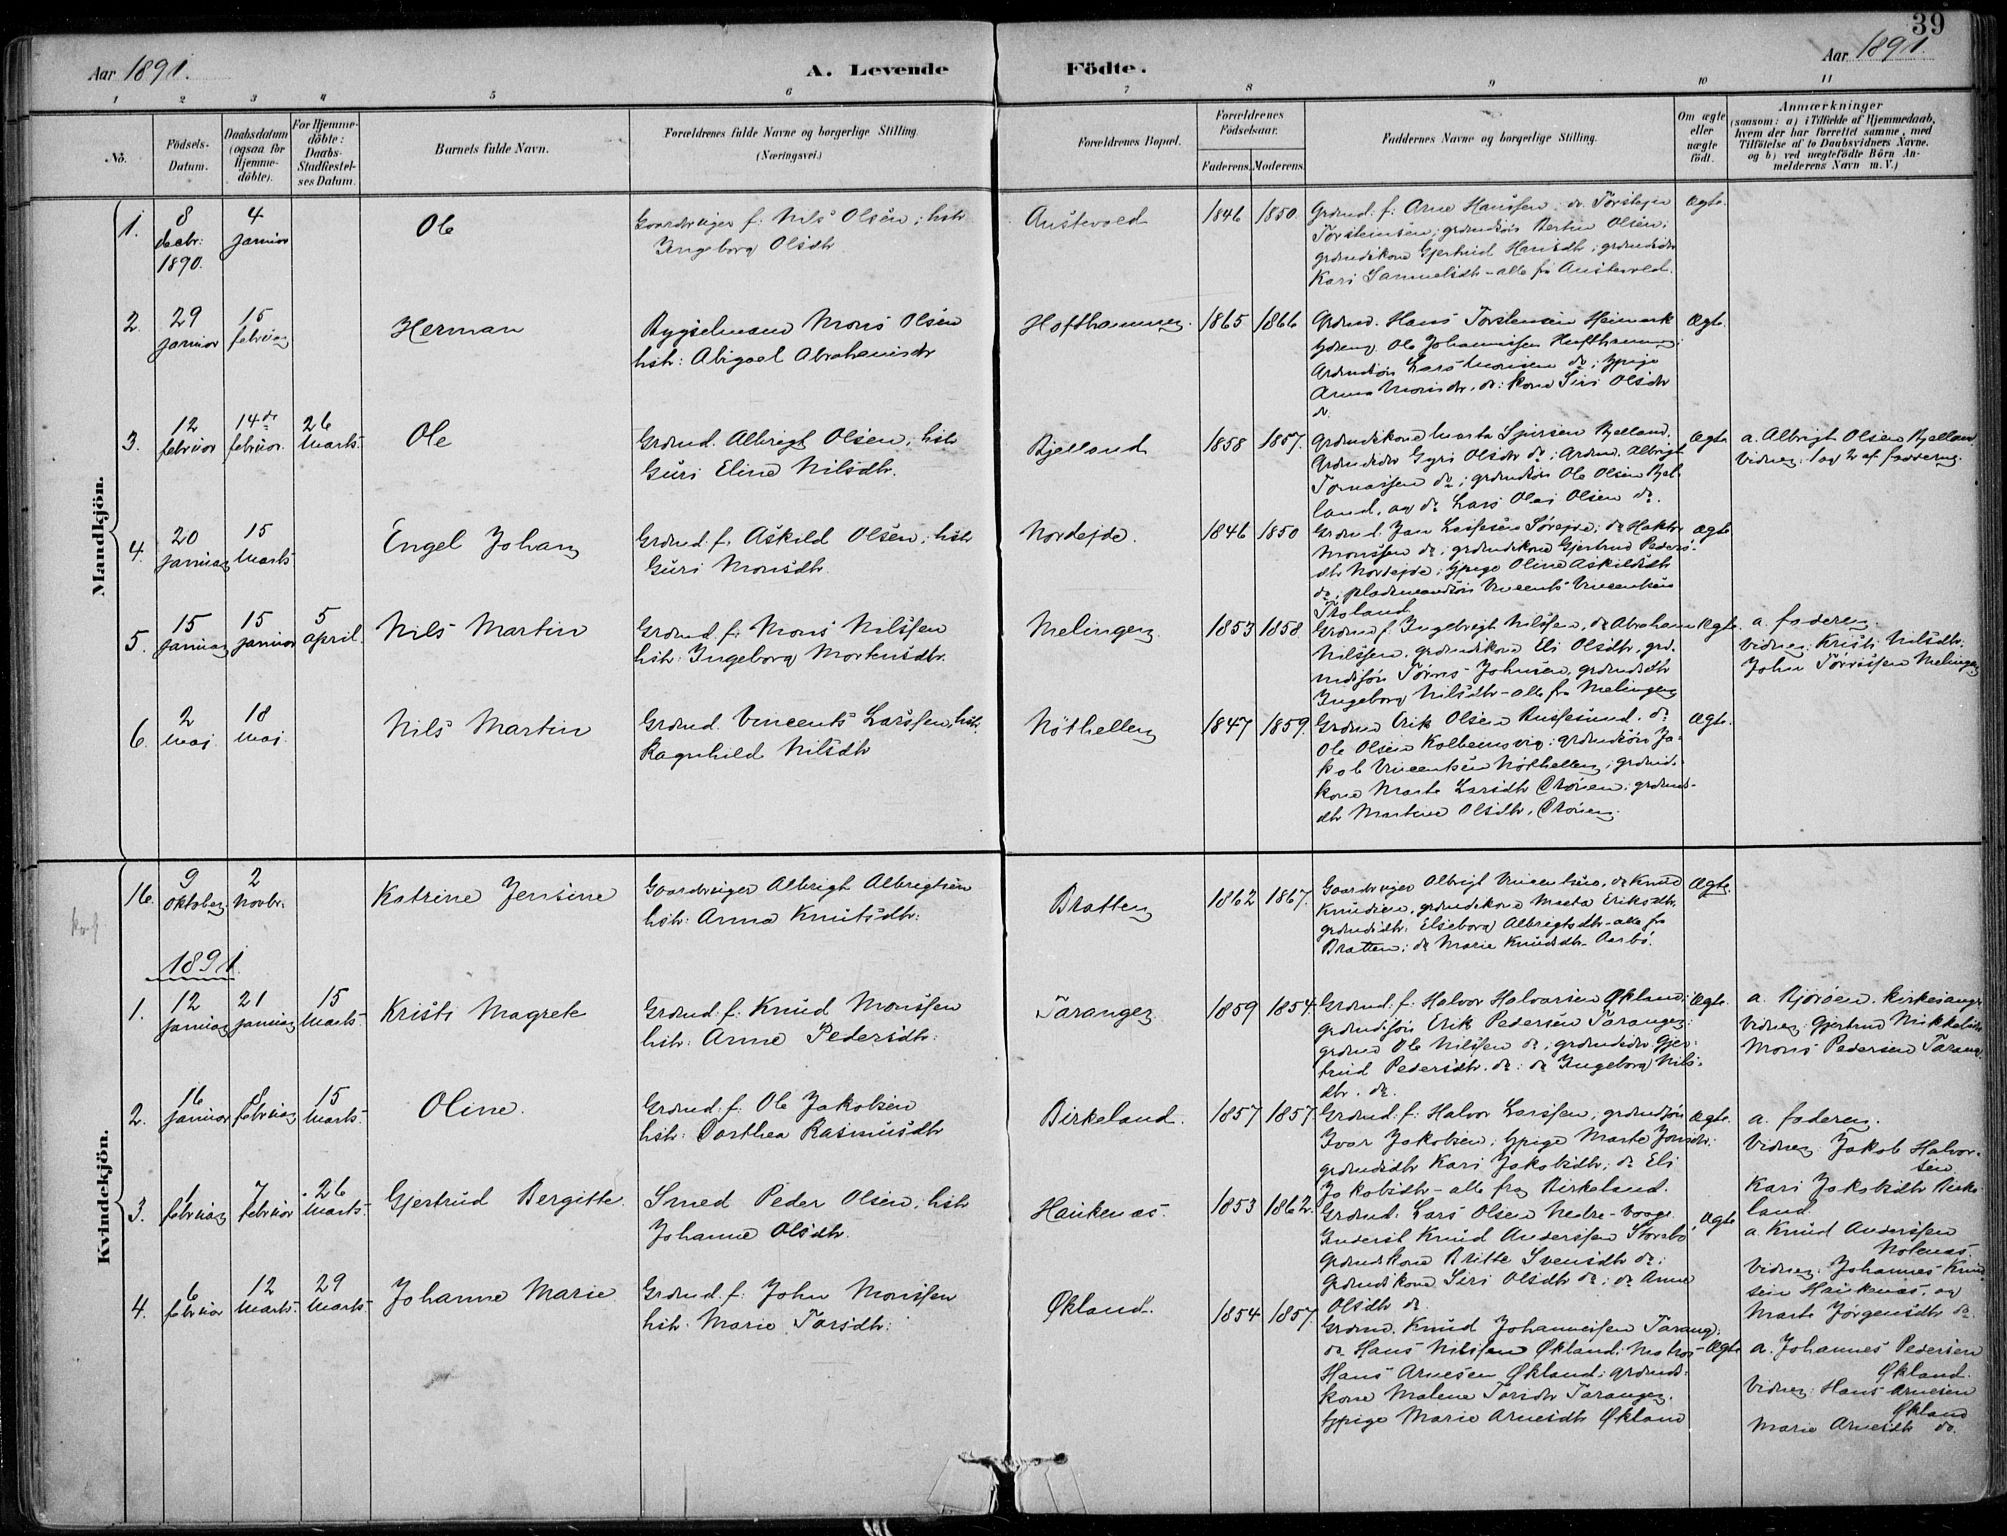 39
Aar 1891.
A. Levende Födte.
Aar 1891.
1 2 3 4 5 6 7 8 9 10 11
No.
Födsels-Datum.
Daabsdatum (ogsaa for Hjemme-döbte).
For Hjemme-döbte: Daabs-Stadfæstel-ses Datum.
Barnets fulde Navn.
Forældrenes fulde Navne og borgerlige Stilling.
(Næringsvei.)
Forældrenes Bopæl.
Forældrenes Födselsaar.
Faderens. Moderens.
Faddernes Navne og borgerlige Stilling.
Om ægte eller uægte födt.
Anmærkninger
(saasom: a) i Tilfælde af Hjemmedaab,
hvem der har forrettet samme, med
Tilföielse af to Daabsvidners Navne,
og b) ved uægtefödte Börn An-
melderens Navn m. V.)
Mandkjön.
1. 8 decbr: 1890. 4 januar Ole
Gaardbruger f. Nils Olsen; hstr
Ingeborg Olsdtr.
Austevold 1846 1850.
Grdmd. f. Arne Hanssen; do Torstein
Torsteinsen; grdmdsøn Bertin Olsen;
grdmdskone Gjertrud Hansdtr; grdmdsdtr
Kari Samuelsdtr - alle fra Austevold.
Ægte.
2. 29 januar 15 februar Herman
Bygselmand Mons Olsen
hstr: Abigael Abrahamsdtr
Hofthammer. 1865 1866
Grdmd. Hans Torsteinsen Heimark
Ole Johannessen Hufthammer;
Grdmdsøn Lars Monsen do; ypige
Anna Monsdtr. do; kone Siri Olsdtr
do.
Ægte.
3. 12 februar 14de februar. 26 Marts. Ole
Grdmd. Albrigt Olsen; hstr
Guri Eline Nilsdtr.
Bjelland 1858 1857.
Grdmdskone Marta Sjursen Bjelland.
Grdmdsdtr Gyri Olsdtr do; Grdmd. Albrigt
Tomassen do; grdmdsøn Ole Olsen Bjel-
land, og do Lars Olai Olsen do.
Ægte
a. Albrigt Olsen Bjelland
Vidner: 1 og 2 af fadderne.
4. 20 januar 15 Marts Engel Johan
Grdmd: f. Askild Olsen; hstr
Guri Monsdtr.
Nordejde. 1846 1850
Grdmd. Jan Larssen Sørejde; do Haktor
Monssen do; grdmdskone Gjertrud Peders-
dtr Nordejde; ypige Oline Askildsdtr
do; pladsmandssøn Vincents Vincentsen
Ægte
5. 15 januar 15 januar 5 april. Nils Martin
Grdmd. f. Mons Nilssen
hstr: Ingeborg Mortensdtr.
Melingen 1853 1858.
Grdmd f. Ingebrigt Nilssen, do Abraham
Nilssen, grdmdskone Eli Olsdtr, grd-
mdsøn Tørres Johnsen, grdmdsdtr
Ingeborg Nilsdtr - alle fra Melingen
Ægte
a. faderen.
Vidner: Kristi Nilsdtr.
John Tørrissen Melingen
6. 2 maj. 18 Maj. Nils Martin
Grdmd. Vincents Larssen, hstr.
Ragnhild Nilsdtr
Nøthellen 1847 1859.
Grdmd Erik Olsen Russesund. do
Ole Olsen Kolbeinsvig; Grdmdsøn Ja-
kob Vincentsen Nøthellen; grdmds-
kone Marte Larsdtr Drønen; grdmds-
dtr Martine Olsdtr. Drønen.
Ægte.
Kvindekjön.
16. 9 oktober 2 Novbr: Katrine Jensine
Gaardbruger Albrigt Albrigtsen
hstr: Anna Knutsdtr:
Bratten 1862 1867.
Gaardbruger Albrigt Vincentsen, do Knud
Knudsen, grdmdskone Marta Eriksdtr,
grdmdsdtr: Elseborg Albrigtsdtr - alle fra
Bratten; do Marie Knudsdtr. Aarbø.
Ægte.
1891.
1. 12 januar 21 januar 15 Marts. Kristi Magrete
Grdmd: f: Knud Monssen
hstr: Anne Pedersdtr:
Taranger 1859 1854
Grdmd: f: Halvor Halvorsen Økland;
grdmdsøn Erik Pedersen Taranger;
grdmd Ole Nilssen do; grdmdsdtr Gjer-
trud Pedersdtr. do; do Ingeborg Nils-
dtr. do.
Ægte.
a. Bjørøen, kirkesanger
Vidner: Gjertrud Mikkelsdtr
Mons Pedersen Tarang.
2. 16 januar 8 februar 15 Marts. Oline.
Grdmd: f: Ole Jakobsen
hstr: Dorthea Rasmusdtr
Birkeland. 1857 1857
Grdmd: f: Halvor Larssen; grdmdsøn
Ivar Jakobsen; ypige Marte Jonsdtr;
grdmdsdtr Kari Jakobsdtr; do Eli
Jakobsdtr - alle fra Birkeland.
Ægte.
a. faderen.
Vidner: Jakob Halvor-
sen
Kari Jakobsdtr Birke-
land.
3. 1 februar 7 februar 26 Marts. Gjertrud Bergitte.
Smed Peder Olsen; hstr
Johanne Olsdtr.
Haukenæs. 1853 1862
Grdmd: Lars Olsen Nedre-Vaage.
Knud Anderssen Storebø
Grdmdskone Britte Svensdtr do;
Grdmdskone Siri Olsdtr do; do Anne
Olsdtr do.
Ægte
a. Knud Anderssen
Vidner: Johannes Knud-
sen Haukenæs, og
Marte Jørgensdtr do.
4. 6 februar 12 Marts. 29 Marts. Johanne Marie
Grdmd: f: John Monssen
hstr. Marie Larsdtr:
Økland. 1854 1857
Grdmd. Knud Johannessen Tarang;
do Hans Nilssen Økland;
Hans Arnesen Økland; grdmds-
kone Malene Larsdtr Taranger.
ypige Marie Arnesdtr Økland
Ægte
a. Johannes Pedersen
Økland.
Vidner: Hans Arnesen
Økland
Marie Arnesdtr do.